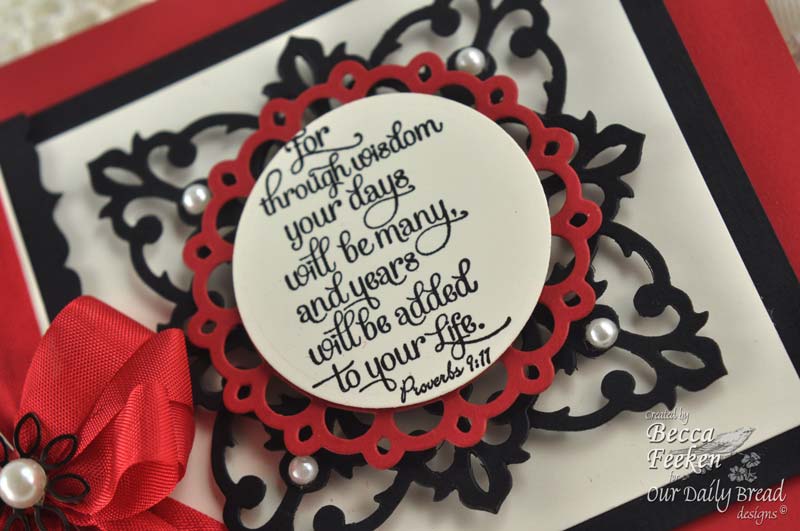 For
through wisdom
your days
will be many,
and years
will be added
to your Life.
Proverbs 9:11
Created by
Becca
Feeken
for
Our Daily Bread
designs©